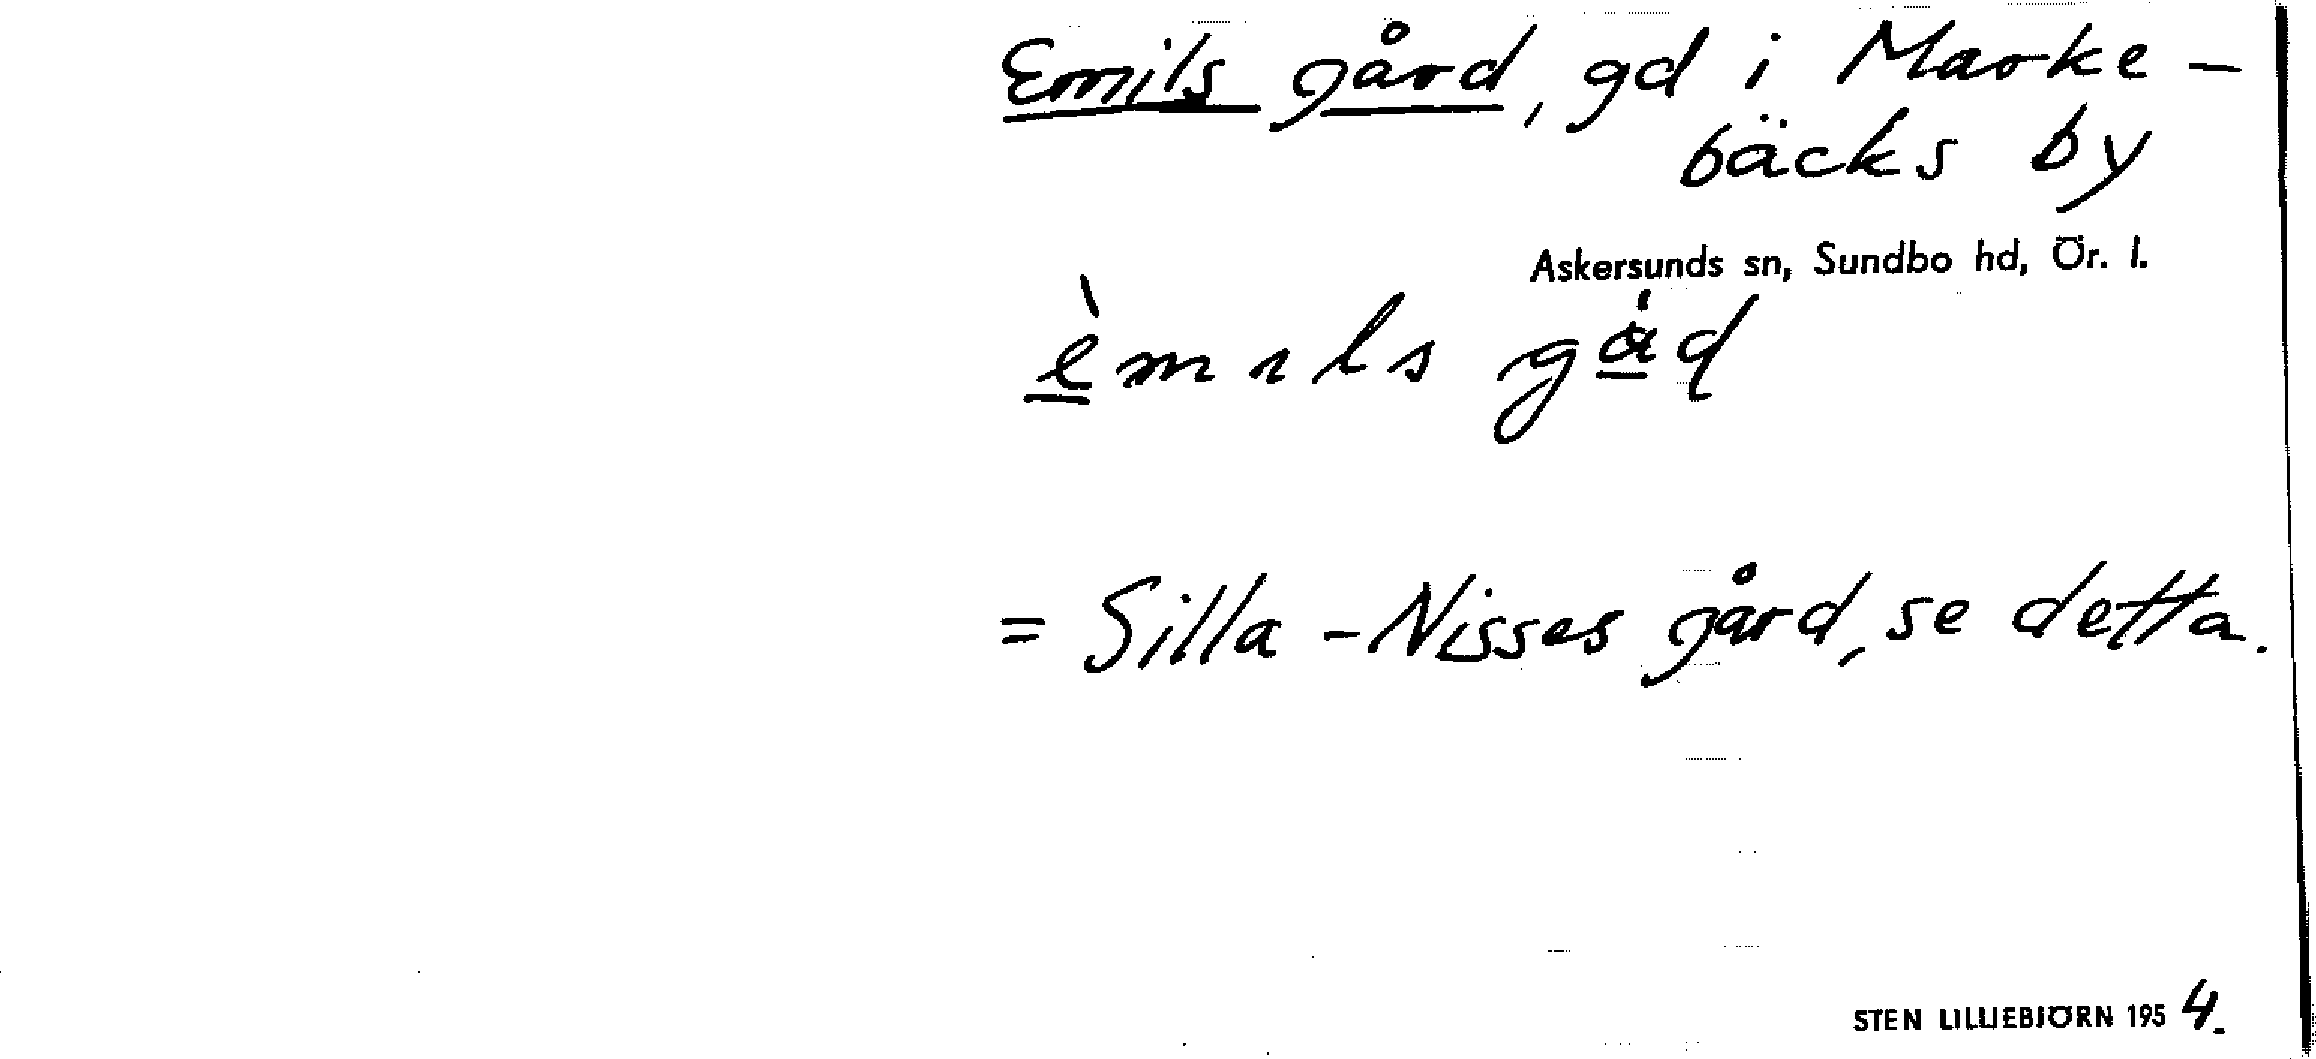 Emils gård, gd i Marke-
bäcks by
Askersunds sn, Sundbo hd, Ör. l.
èmıls gå̀d
= Silla-Nisses gård, se detta.
STEN LILLIEBJÖRN 1954.